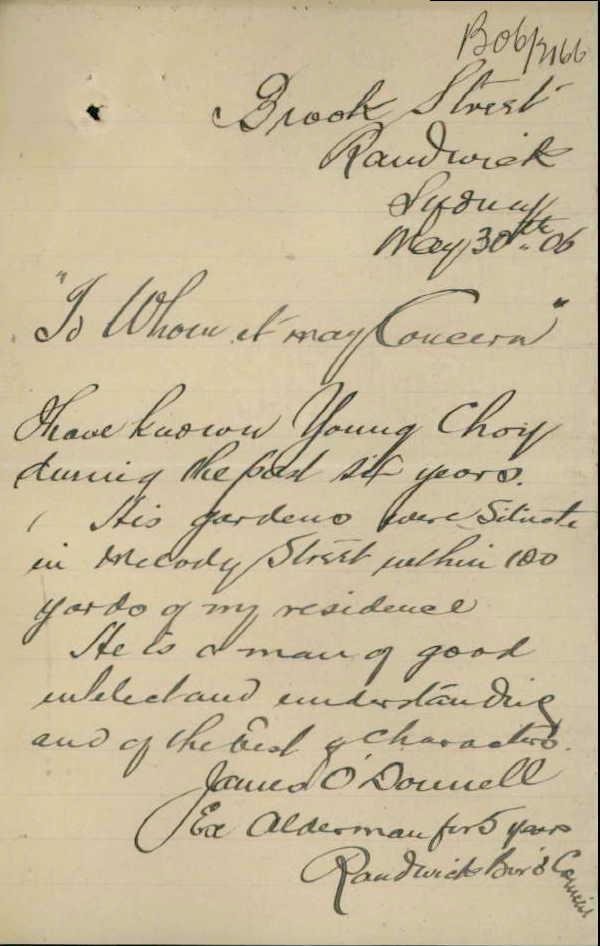 B06/3166
Brook Street
Randwick
Sydney
May 30th 06
"To Whom it may Concern"
I have known Young Choy
during the past six years.
His gardens were Situate
in Melody Street within 100
yards of my residence
He is a man of good
intellect and understanding
and of the best of characters.
James O'Donnell
Ex Alderman for 5 years
Randwick Bor'o Council